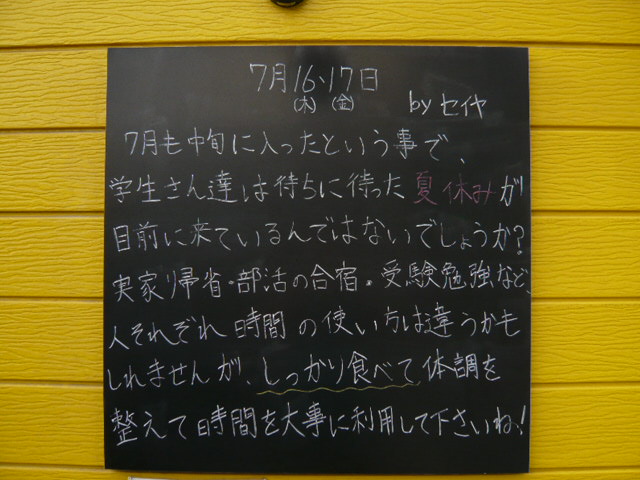 7月16、17日
(木) (金)
by セイヤ
7月も中旬に入ったという事で、
学生さん達は待ちに待った夏休みが
目前に来ているんではないでしょうか?
実家帰省・部活の合宿・受験勉強など、
人それぞれ時間の使い方は違うかも
しれませんが、しっかり食べて体調を
整えて時間を大事に利用して下さいね!